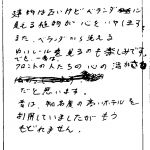 建物は古いけどベランダに
見える枝折が心をいやします
また、ベランダから見える
ゆいレールを見るのも楽しみです。
でも、一番は、
フロントの人たちの心の
だと思います。
昔は、知名度の高いホテルを
利用していましたがもう
もどれません。